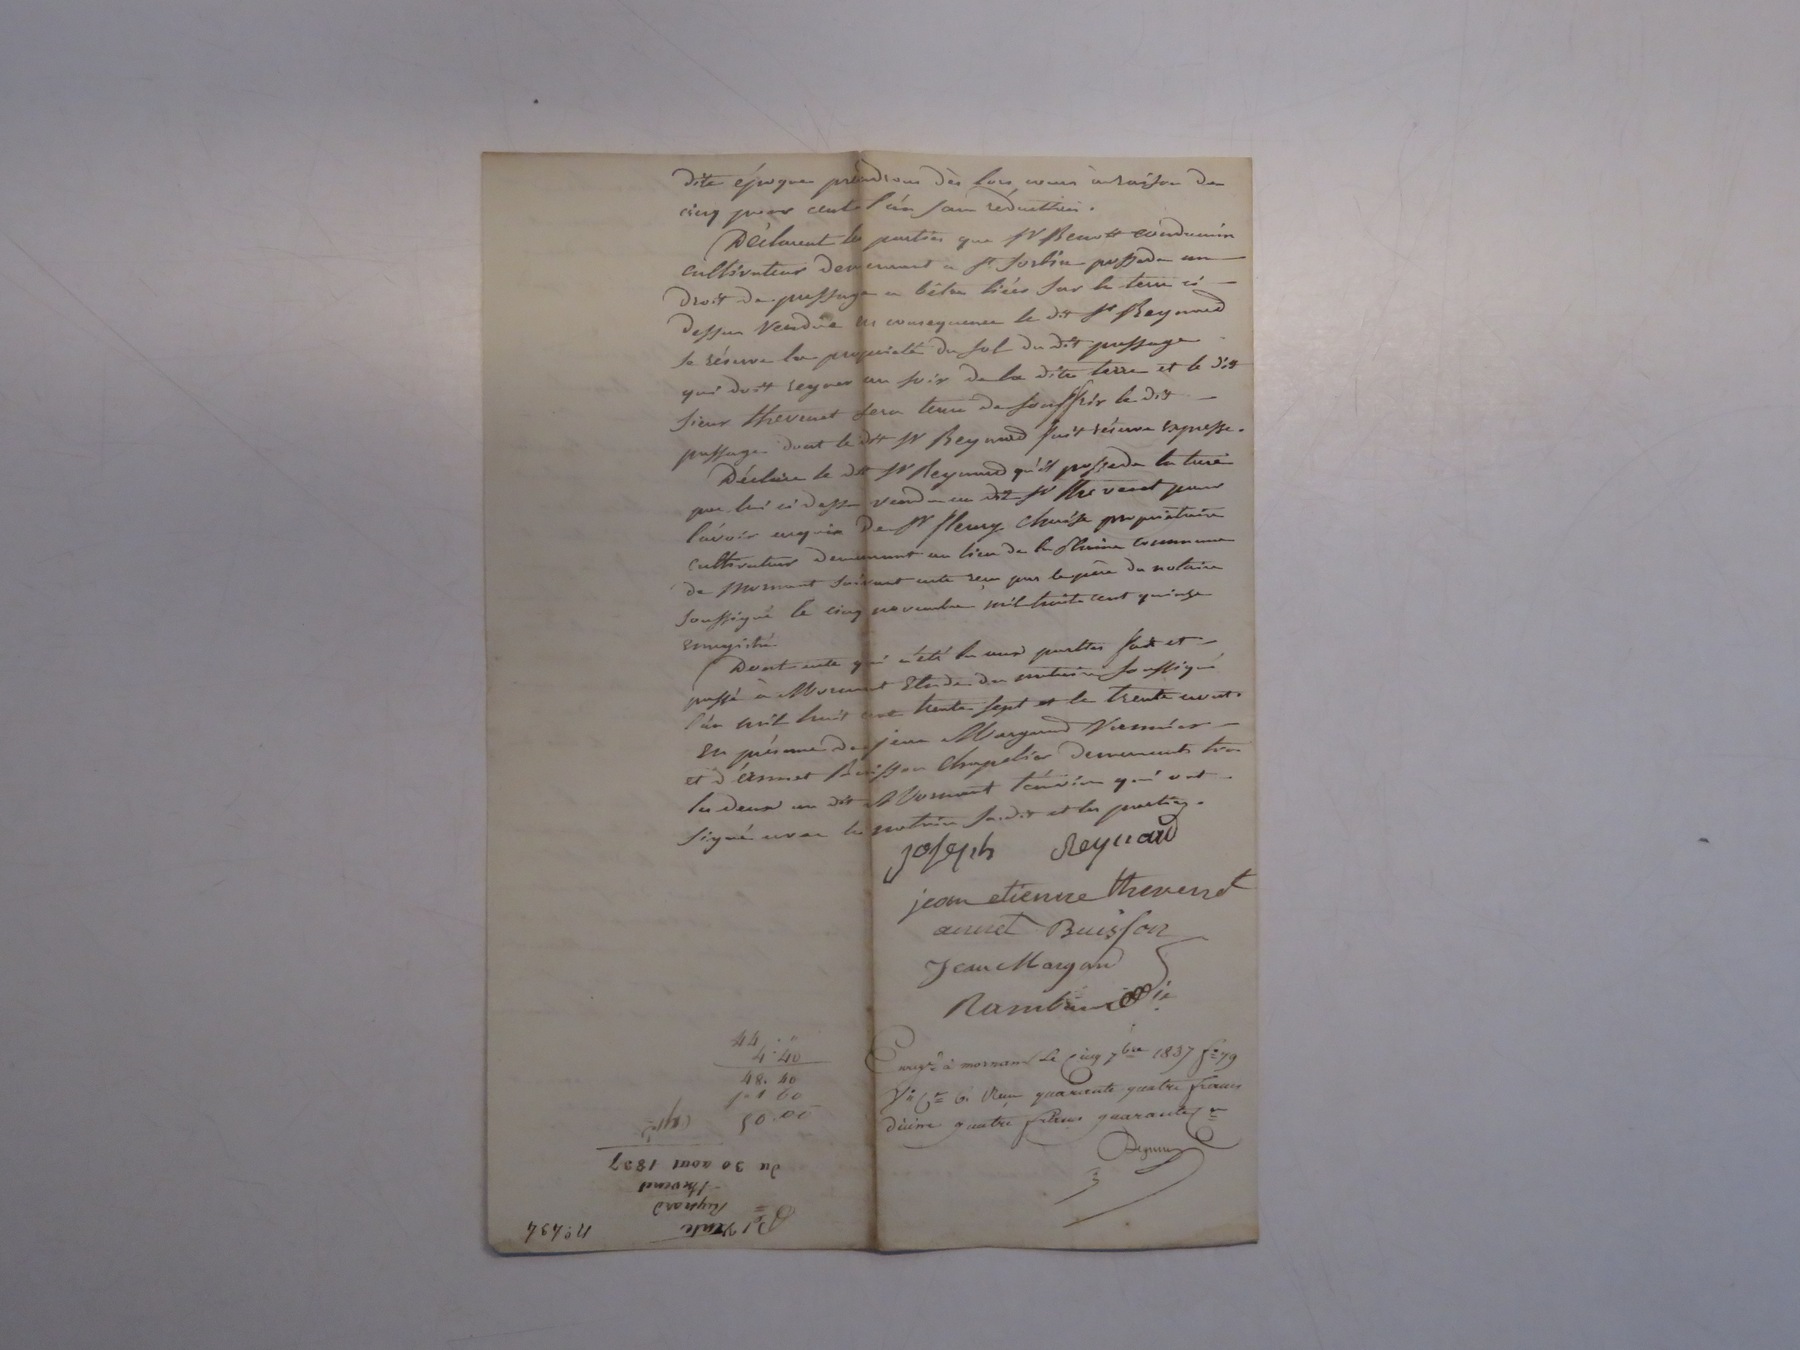 dite époque prendrons dès lors cours à raison de
cinq pour cent l'an sans réduction.
Déclarent les parties que Sr Benoît Condamin
cultivateur demeurant à St Sorlin possède un
droit de passage à bêtes liées sur la terre ci
dessus vendue en conséquence le dit Sr Reynard
se réserve la propriété du sol du dit passage
qui doit régner au soir de la dite terre et le dit
sieur thevenet sera tenu de souffrir le dit
passage dont le dit Sr Reynard fait réserve expresse.
Déclare le dit Sr Reynard qu'il possède la terre
par lui ci dessus vendue au dit Sr thevenet pour
l'avoir acquise de Sr fleury propriétaire
cultivateur demeurant au lieu de la plaine commune
de Mornant suivant acte reçu par le père du notaire
soussigné le cinq novembre mil huit cent quinze
enregistré.
Dont acte qui a été lu aux parties fait et
passé à Mornant Etude du notaire soussigné
l'an mil huit cent trente sept et le trente aout.
En présence de jean Margand
et d'annet Buisson chapelier demeurants tous
les deux au dit Mornant témoins qui ont
signé avec le notaire susdit et les parties.
Joseph Reynard
jean etienne thevenet
annet Buisson
Jean Margand
Enregé à mornant Le Cinq 7bre 1837 fo 79
Vo Ce 6. Reçu quarante quatre francs
décime quatre francs quarante Ce
44 . "
4 . 40
48. 40
1. 60
50. 00
du 30 aout 1837
thevenet
Reynard
Vente
No 434